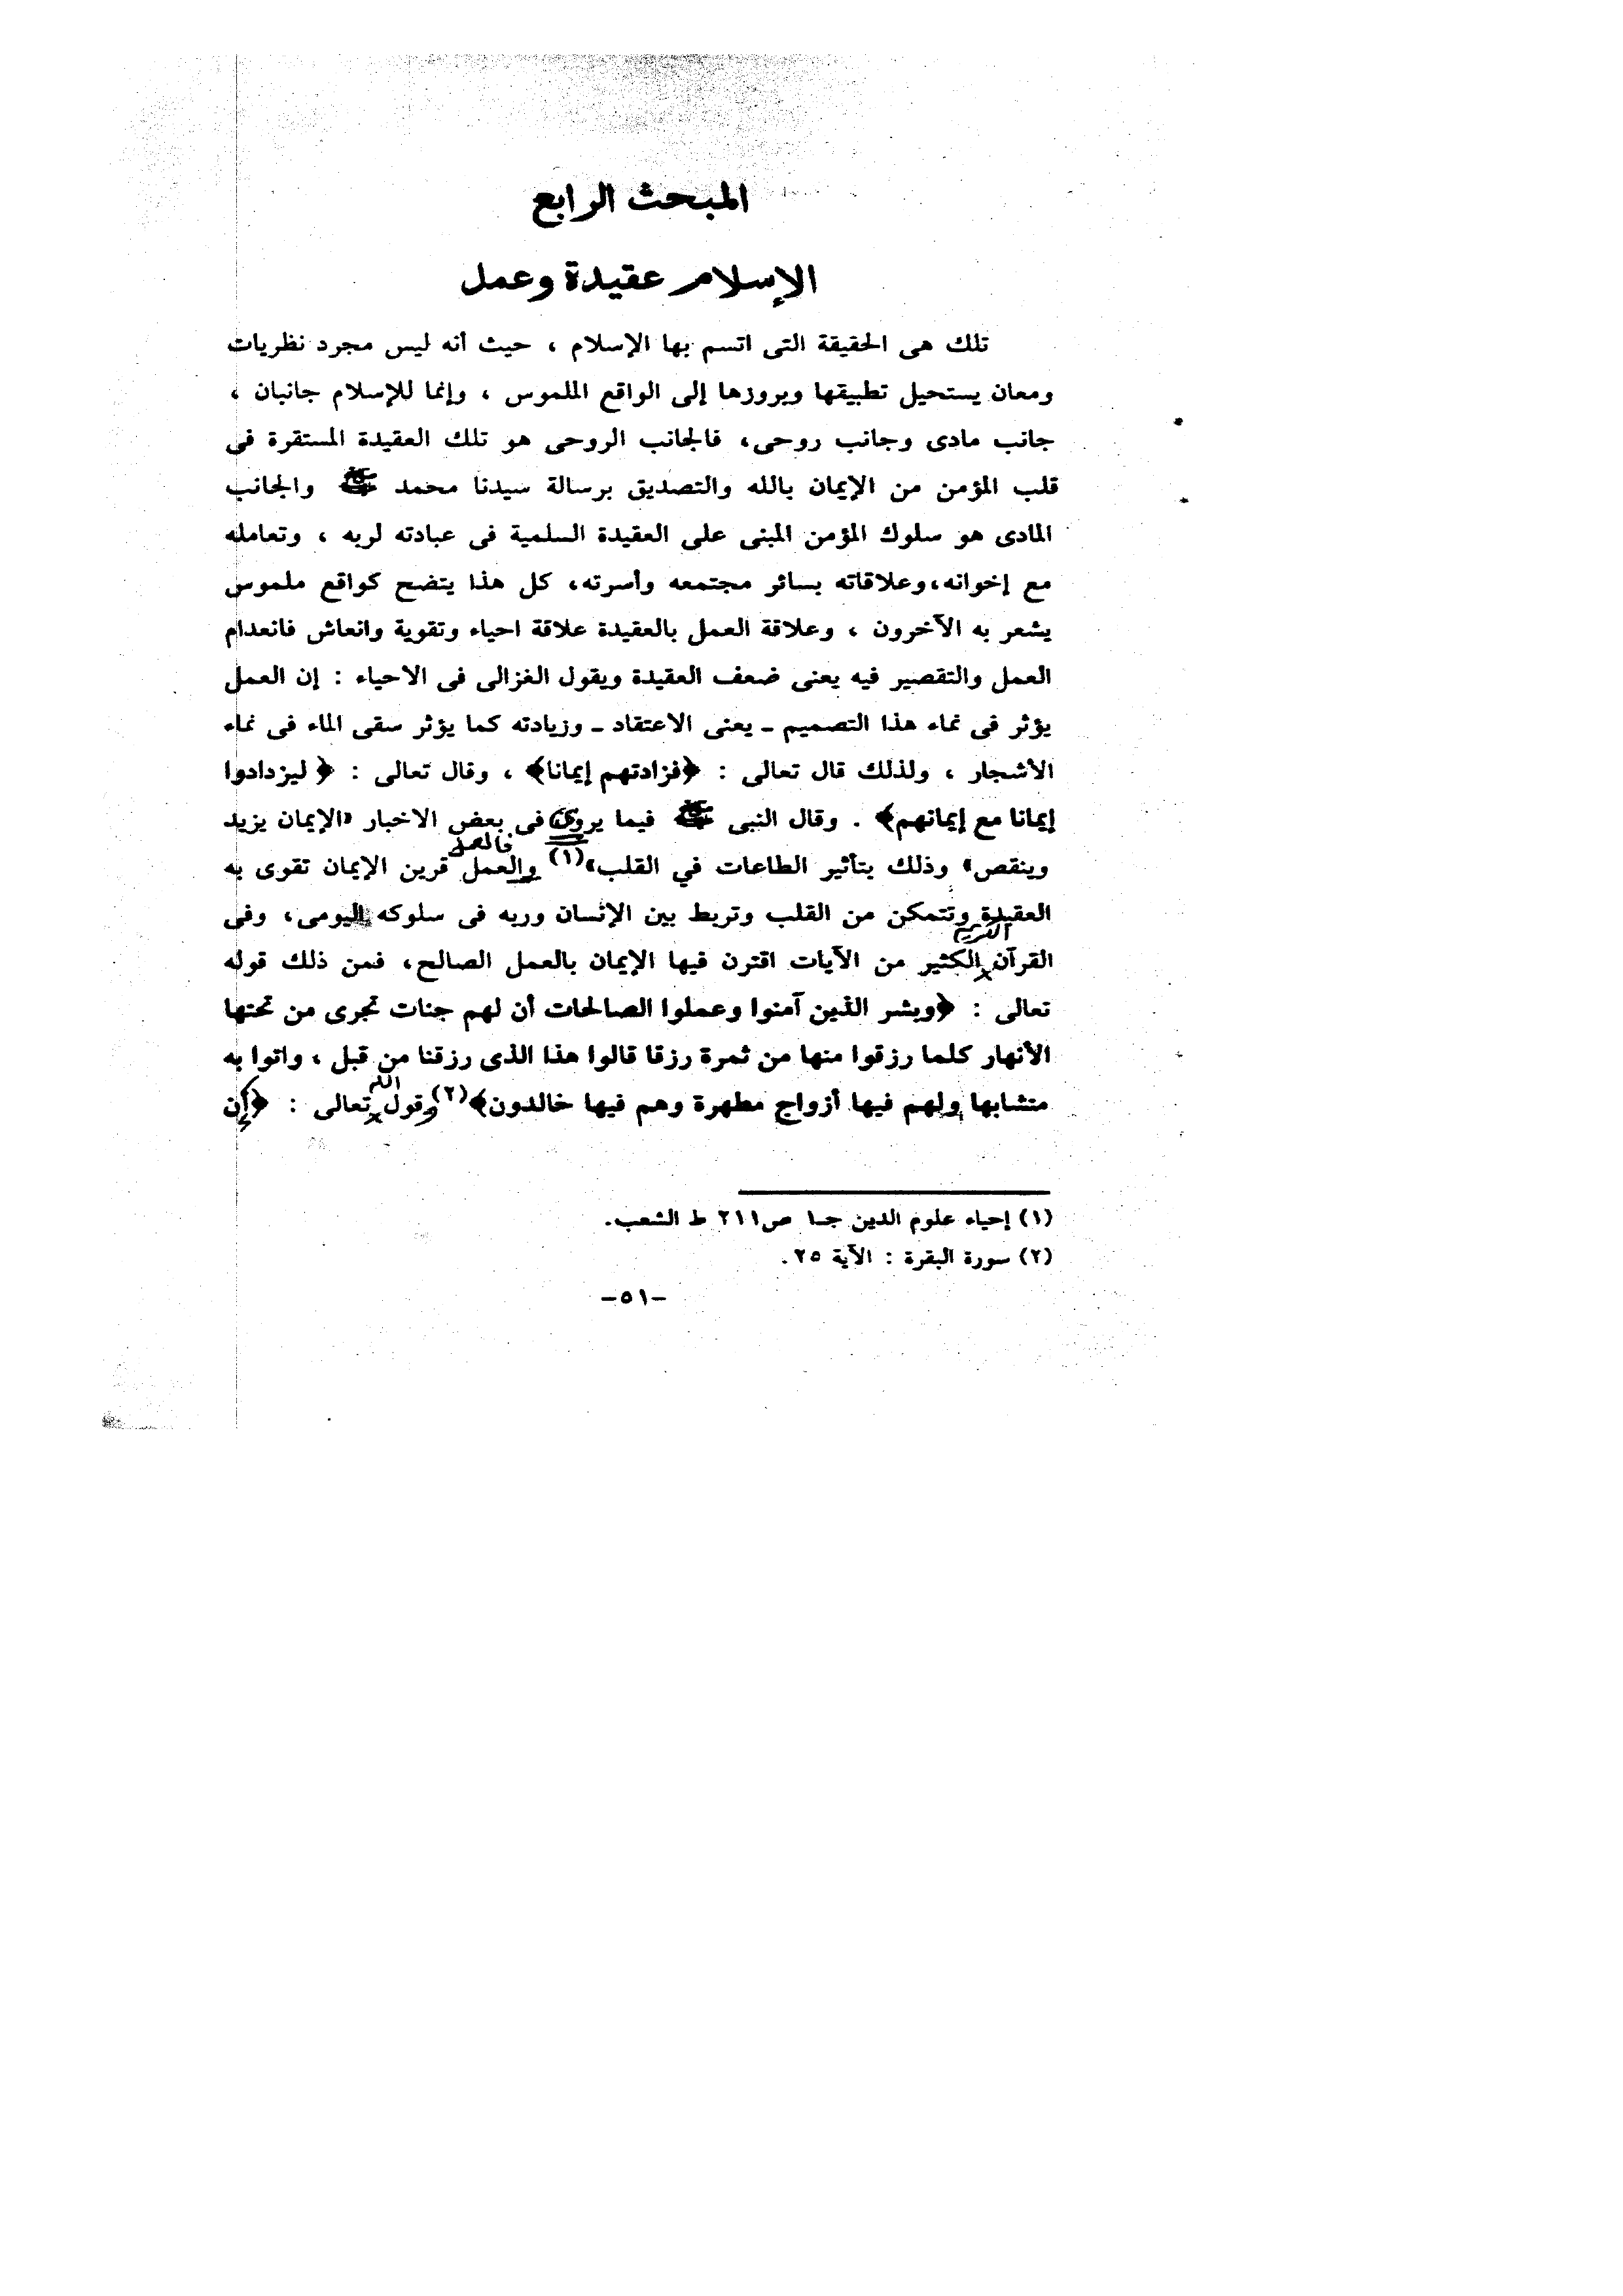 المبحث الرابع
الإسلام عقيدة وعمل
تلك هى الحقيقة التى اتسم بها الإسلام ، حيث أنه ليس مجرد نظريات
ومعان يستحيل تطبيقها وبروزها إلى الواقع الملموس ، وإنما للإسلام جانبان ،
جانب مادى وجانب روحى، فالجانب الروحى هو تلك العقيدة المستقرة فى
قلب المؤمن من الإيمان بالله والتصديق برسالة سيدنا محمد ﷺ والجانب
المادى هو سلوك المؤمن المبنى على العقيدة السلمية فى عبادته لربه ، وتعامله
مع إخوانه، وعلاقاته بسائر مجتمعه وأسرته، كل هذا يتضح كواقع ملموس
يشعر به الآخرون ، وعلاقة العمل بالعقيدة علاقة احياء وتقوية وانعاش فانعدام
العمل والتقصير فيه يعنى ضعف العقيدة ويقول الغزالى فى الاحياء : إن العمل
يؤثر فى نماء هذا التصميم ـ يعنى الاعتقاد ـ وزيادته كما يؤثر سقى الماء فى نماء
الأشجار ، ولذلك قال تعالى : ﴿فزادتهم إيمانا﴾ ، وقال تعالى : ﴿ ليزدادوا
إيمانا مع إيمانهم﴾ . وقال النبى ﷺ فيما يروى فى بعض الاخبار «الإيمان يزيد
فالعمل
وينقص» وذلك بتأثير الطاعات في القلب» (١) والعمل قرين الإيمان تقوى به
العقيدة وتتمكن من القلب وتربط بين الإنسان وربه فى سلوكه اليومى، وفى
الكريم
القرآن الكثير من الآيات اقترن فيها الإيمان بالعمل الصالح، فمن ذلك قوله
تعالى : ﴿وبشر الذين آمنوا وعملوا الصالحات أن لهم جنات تجرى من تحتها
الأنهار كلما رزقوا منها من ثمرة رزقا قالوا هذا الذى رزقنا من قبل ، واتوا به
الله
متشابها ولهم فيها أزواج مطهرة وهم فيها خالدون﴾(٢) وقول تعالى : ﴿إن
(١) إحياء علوم الدين جـ١ ص٢١١ ط الشعب.
(٢) سورة البقرة : الآية ٢٥ .
-٥١-